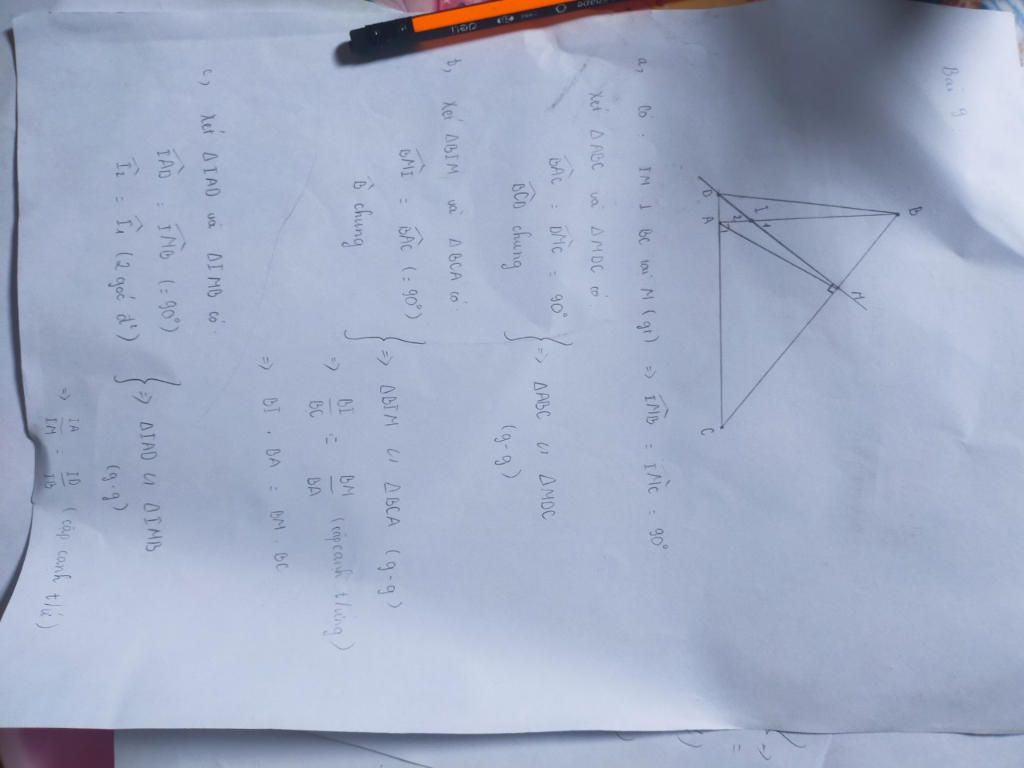 Bài 9
B
I
1
2
D
A
M
C
a, Có : IM ⊥ BC tại M (gt) => IMB̂ = IMĈ = 90°
Xét ΔABC và ΔMDC có
BAĈ = DMĈ = 90°
BCD̂ chung
} => ΔABC ∽ ΔMDC
(g-g)
b, Xét ΔBIM và ΔBCA có
BMÎ = BAĈ (=90°)
B̂ chung
} => ΔBIM ∽ ΔBCA (g-g)
=> BI/BC = BM/BA (cặp cạnh t/ứng)
=> BI . BA = BM . BC
c, Xét ΔIAD và ΔIMB có
IAD̂ = IMB̂ (=90°)
Î2 = Î1 (2 góc đ²)
} => ΔIAD ∽ ΔIMB
(g-g)
=> IA/IM = ID/IB (cặp cạnh t/ứ)